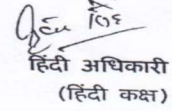 हिंदी अधिकारी
(हिंदी कक्ष)